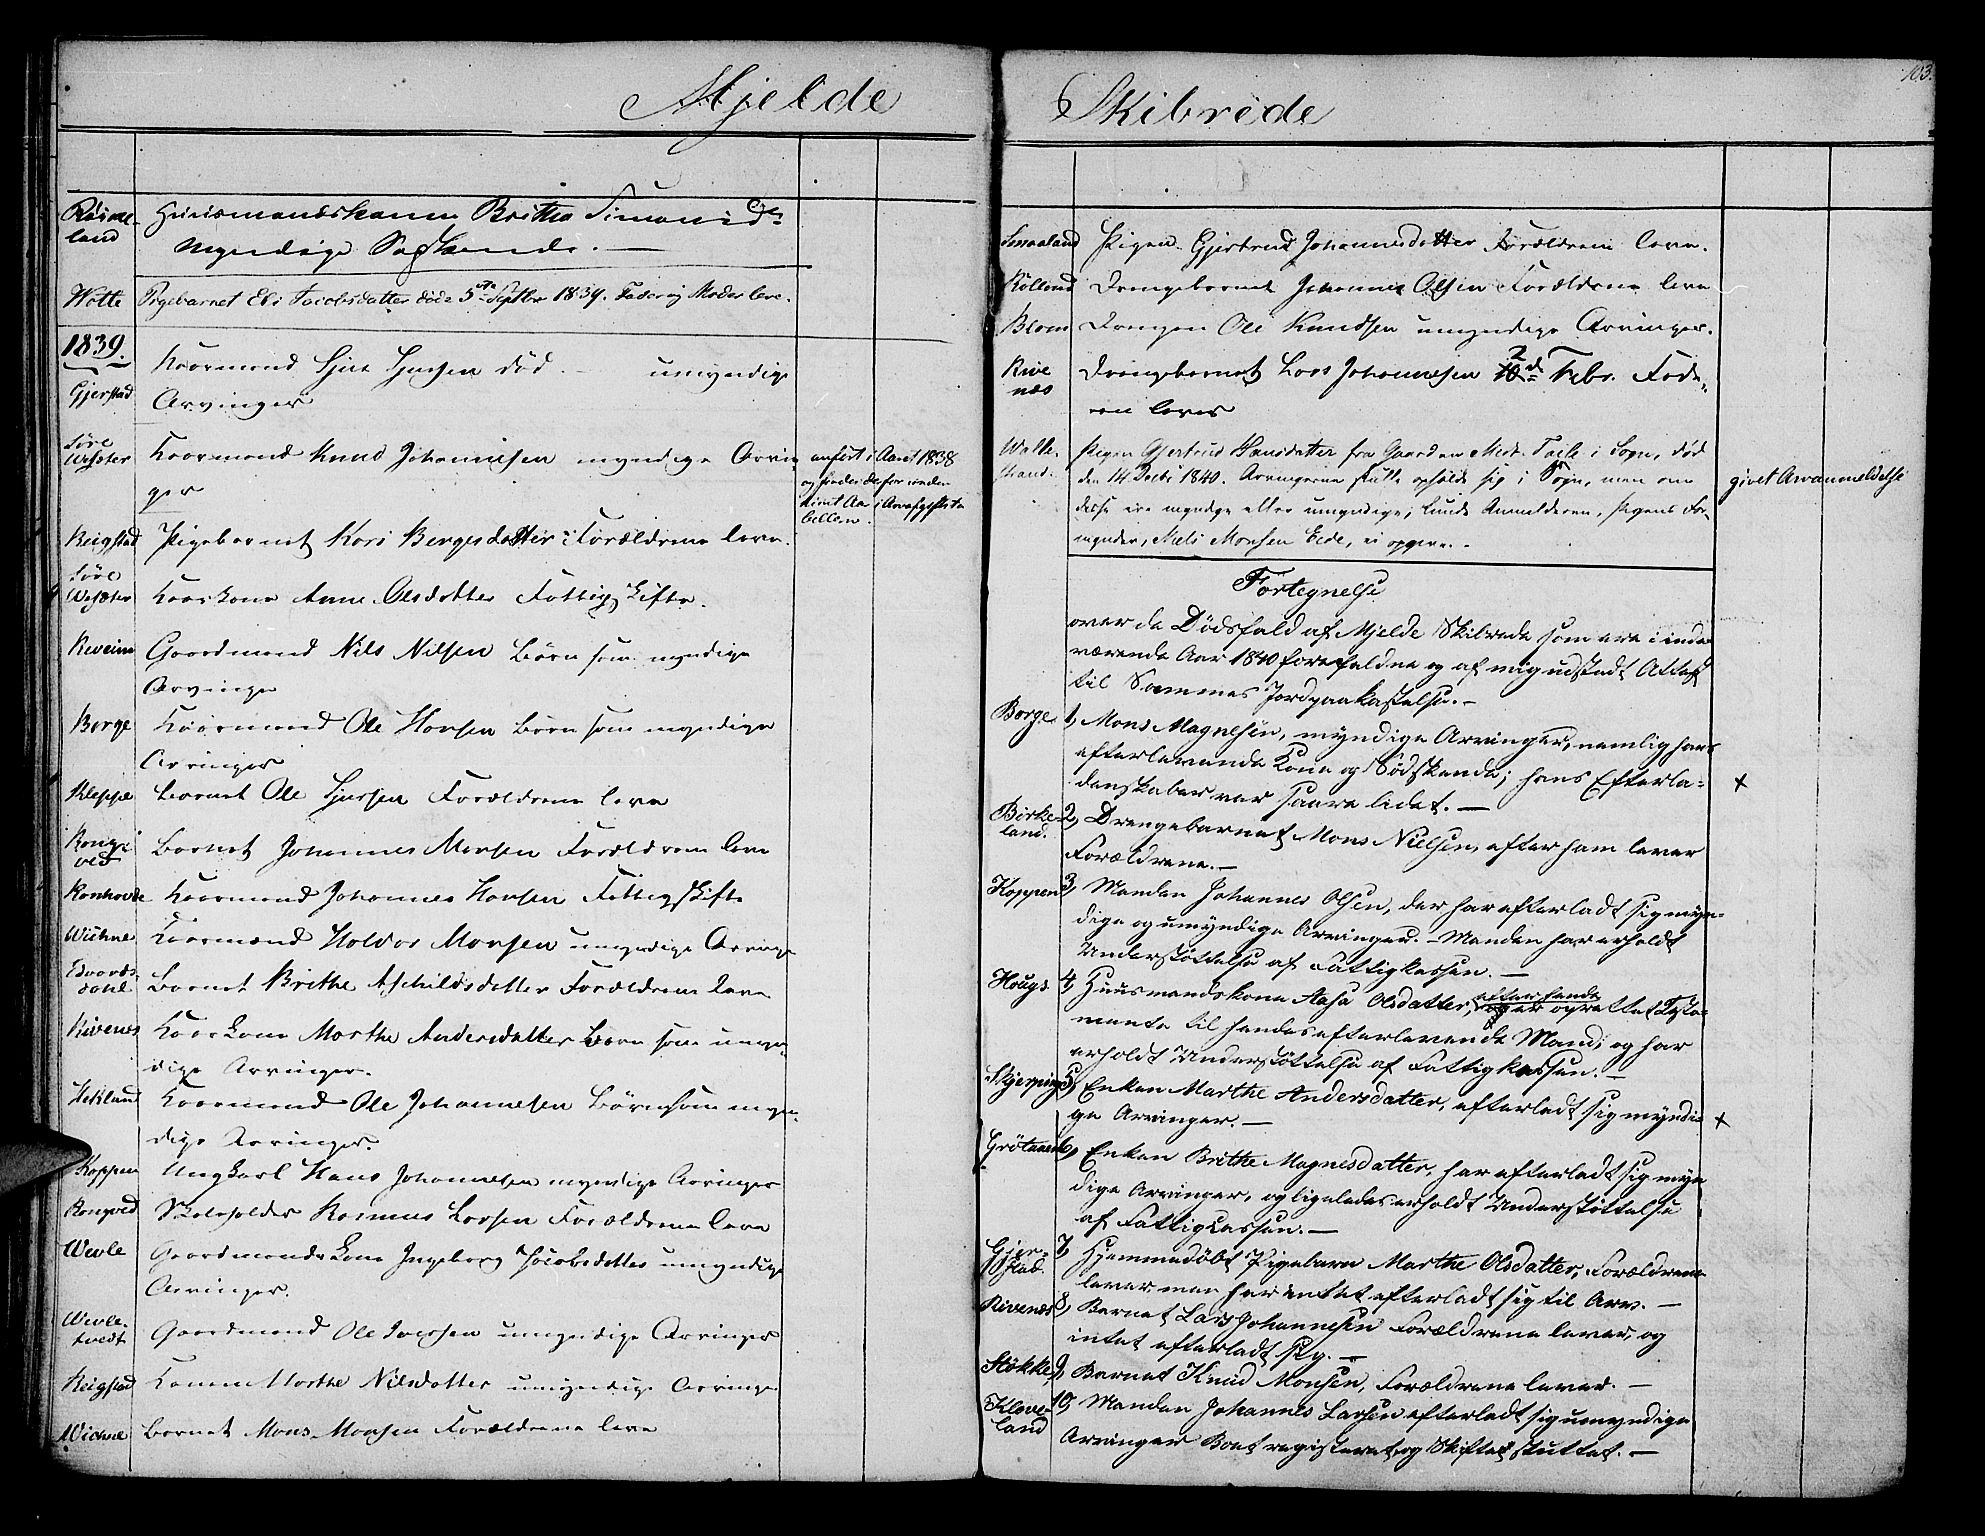 Mjelde
Rivne-
land
Huusmandskonen Britha Simonsdr
myndige Søskende. —
Wotte
Pigebarnet Eli Jacobsdatter døde 5te Septbr 1839. Fader og Moder leve.
1839.
Gjerstad
Kaarmand Sjur Sjursen død. — umyndige
Arvinger
Søre
Wesæter
Kaarmand Knud Johannesen myndige Arvin
ger
anført i Aaret 1838
Reigstad
Pigebarnet Kari Bergesdatter Forældrene leve.
Søre
Wesæter
Kaarkone Anne Olsdatter Fattig Skifte.
Kaarmand Nils Nilsen Børn som myndige
Arvinger
Borge
Kaarmand Ole Hansen Børn som myndige
Arvinger
Kleppe
Barnet Ole Sjursen Forældrene leve
Rongve
ved
Barnet Johannes Monsen Forældrene leve
Ronhovde
Kaarmand Johannes Hansen Fattigskifte
Wichne
Kaarmand Haldor Monsen umyndige Arvinge
Edvards-
dahl
Barnet Brithe Askildsdatter Forældrene leve
Rivenes
Kaarkone Marthe Andersdatter Børn som umyn-
dige Arvinger.
Hekland
Kaarmand Ole Johannesen Børn som myn-
dige Arvinger.
Koppen
Ungkarl Hans Johannesen myndige Arvinger
Rongved
Skoleholder Rasmus Larsen Forældrene leve
Wevle
Gaardmands Kone Ingeborg Jacobsdatter umyndige
Arvinger.
Wevle-
tvedt
Gaardmand Ole Iversen umyndige Arvinger
Reigstad
Konen Marthe Nilsdatter umyndige Arvinge
Wichne
Barnet Mons Monsen Forældrene leve
103.
Skibrede
Smaaland
Pigen Gjertrud Johannesdatter Forældrene leve.
Rolland
Drengebarnet Johannes Olsen Forældrene leve
Blom
Drengen Ole Knudsen umyndige Arvinger.
Rive
næs
Drengebarnet Lars Johannesen 2d Febr. Fade-
ren lever
Walle-
strand.
Pigen Gjertrud Hansdatter fra Gaarden i Sogn, død
den 14 Decbr 1840. Arvingerne skulle opholde sig i Sogn, men om
disse ere myndige eller umyndige, kunde Anmelderen, Pigens For-
mynder, Niels Monsen Eide, ei opgive. -
givet Arveanmeldelse
Fortegnelse
over de Dødsfald af Mjelde Skibrede som ere i inde-
værende Aar 1840 forefaldne og af mig udstædt Attest
til Sammes Jordpaakastelse. -
Borge
1, Mons Magnesen, myndige Arvinger, nemlig hans
efterlevende Kone og Sødskende; hans Efterla-
denskaber var saare lidet. —
x
Birke-
land.
2, Drengebarnet Mons Nielsen, efter ham lever
Forældrene. —
Koppen
3, Manden Johannes Olsen, der har efterladt sig myn-
dige og umyndige Arvinger. - Manden har erholdt
Understøttelse af Fattigkassen. —
Hougs
4, Huusmandskone Aasa Olsdatter, efter hende er oprettet Testa-
mente til hendes efterlevende Mand, og har
erholdt Understøttelse af Fattigkassen. —
Skjerping
5, Enken Marthe Andersdatter, efterladt sig myndi-
ge Arvinger. —
x
6, Enken Brithe Magnesdatter, har efterladt sig myn
dige Arvinger, og ligeledes erholdt Understøttelse
af Fattigkassen. —
Gjer-
stad.
7, Hjemmedøbt Pigebarn Marthe Olsdatter, Forældrene
lever, men har intet efterladt sig til Arv. —
Rivenæs
8, Barnet Lars Johannesen Forældrene lever, og
intet efterladt sig. —
Støkke
9, Barnet Knud Monsen, Forældrene lever. —
Kleve-
land
10, Manden Johannes Larsen efterladt sig umyndige
Arvinger Boet registeret og Skiftet sluttet. —